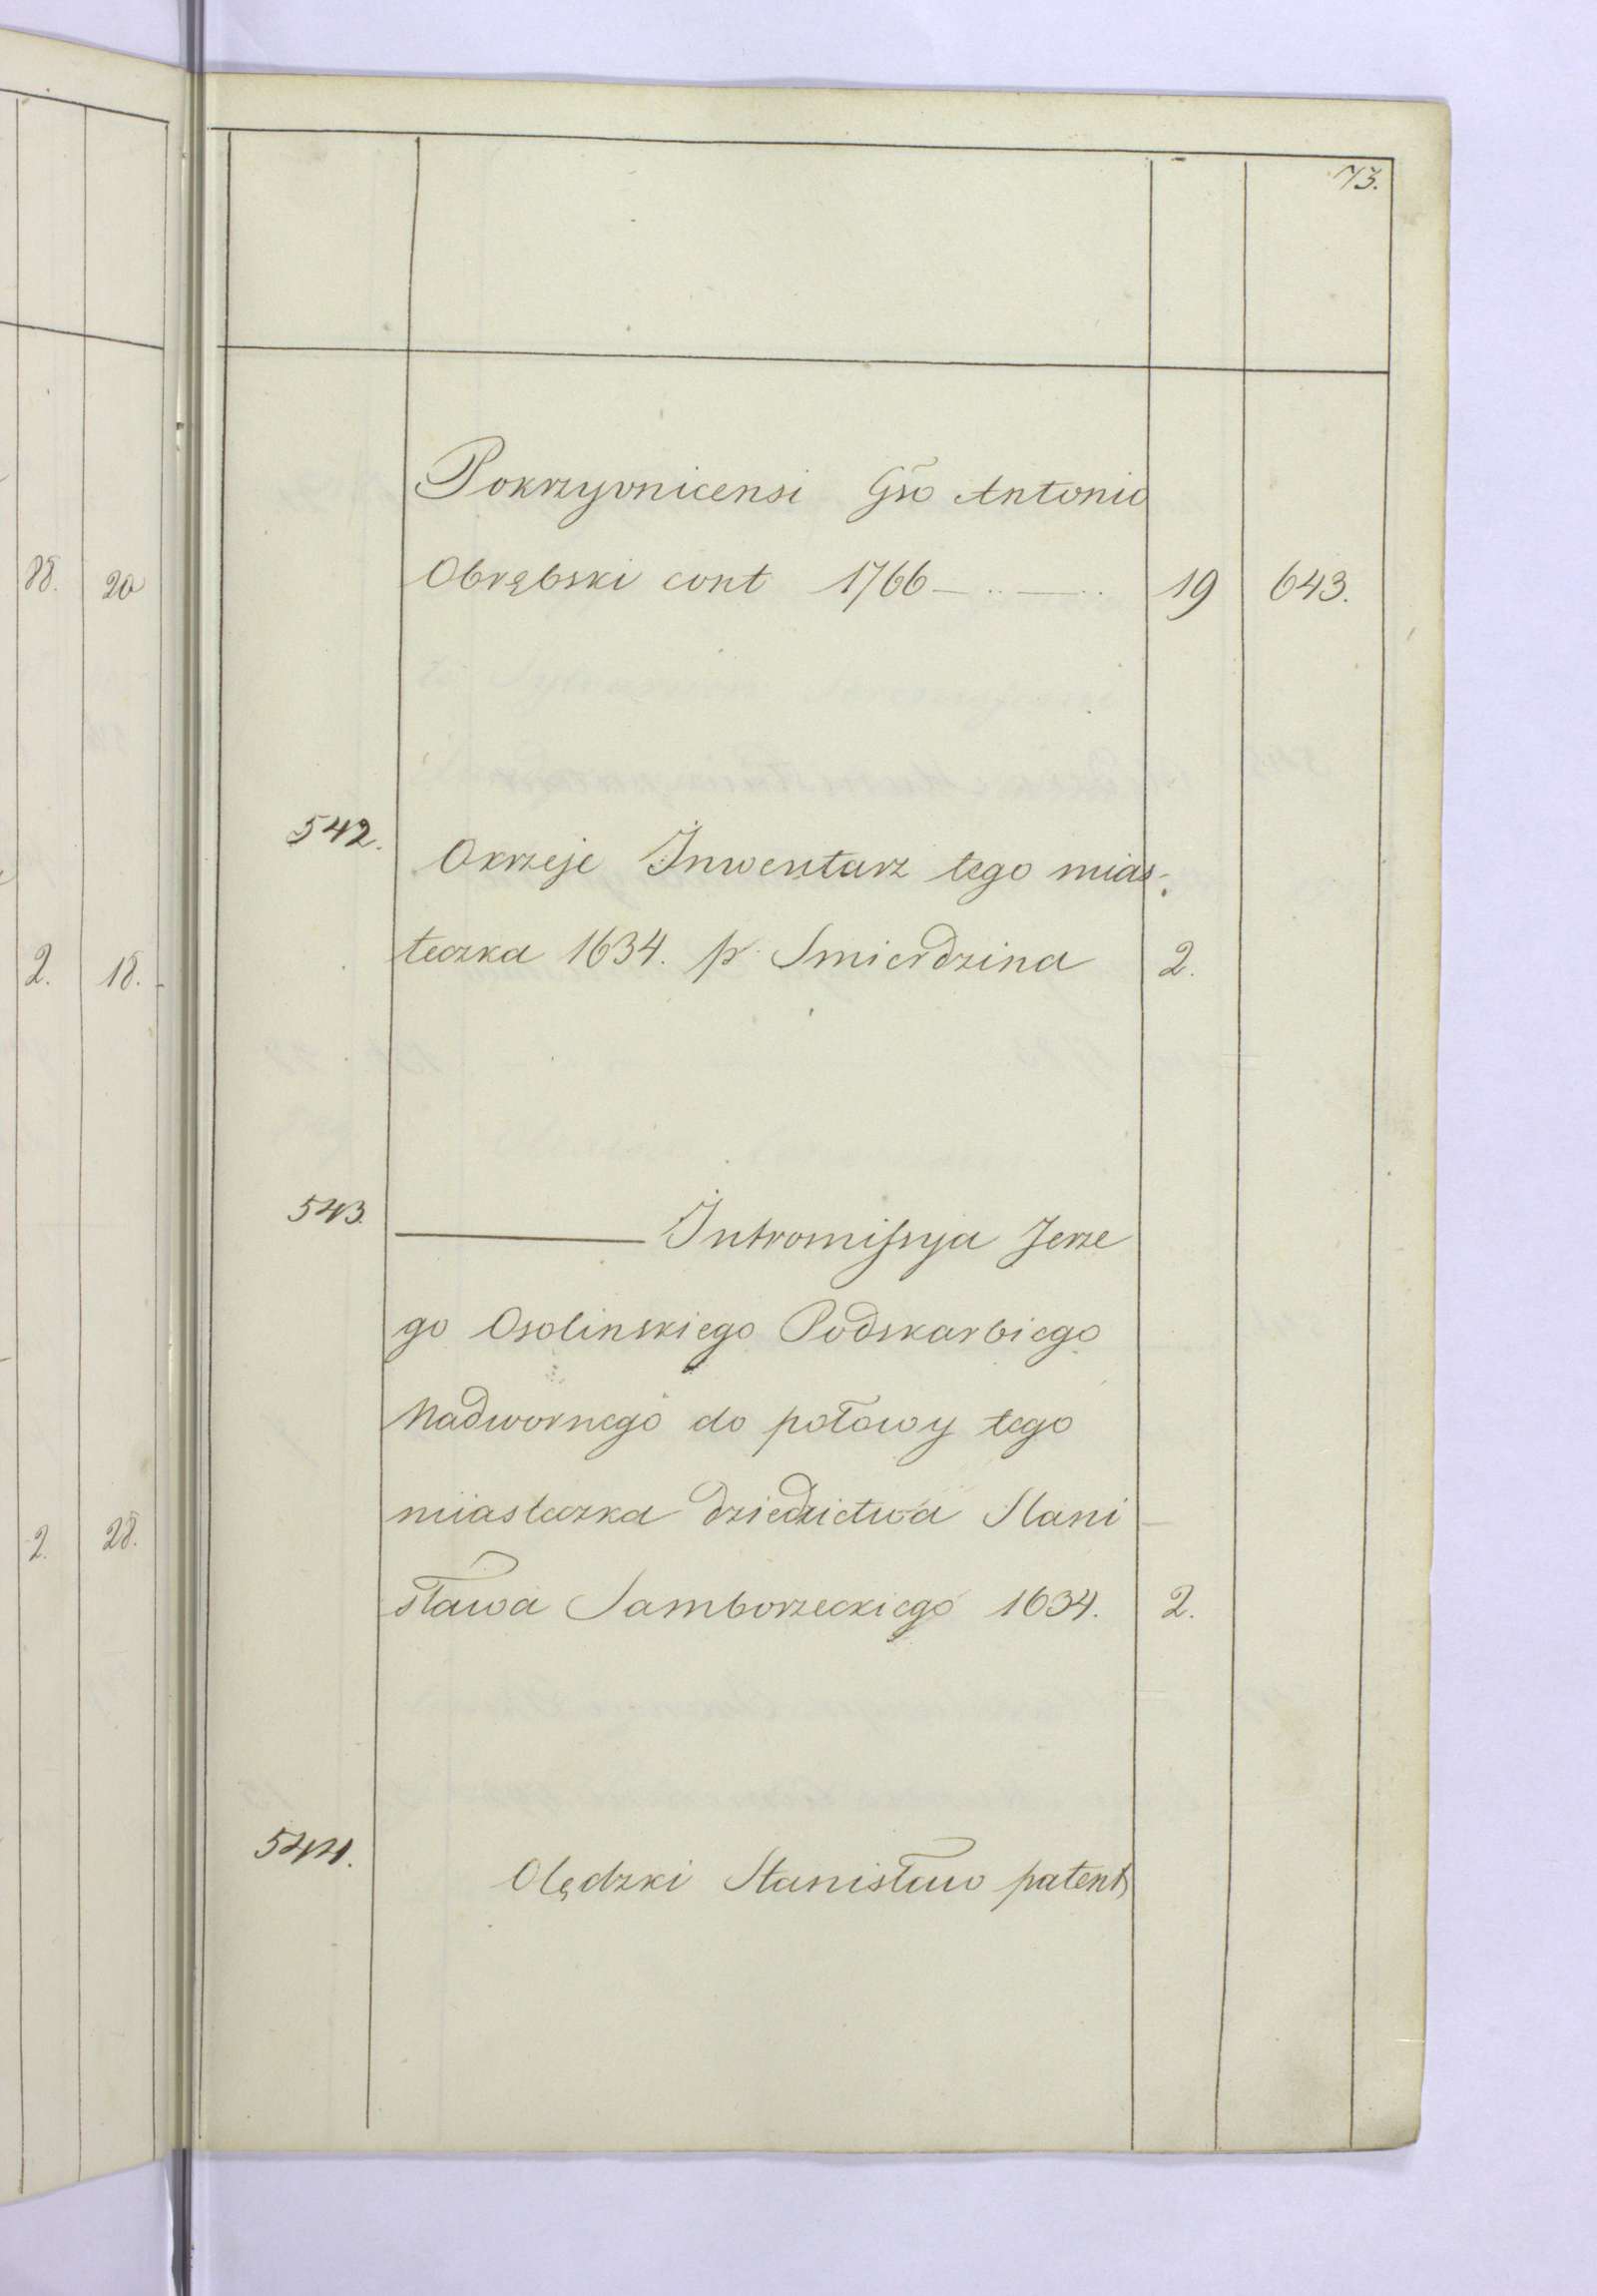 73.
Pokrzyvnicensi Gso Antonio
Obrąbski cont 1766 — .. — .. 19 643.
88. 20
542. Okrzeje Inwentarz tego mias-
teczka 1634. p. Smierdzina 2.
2. 18.
543. ——— Intromissyja Jerze
go Osolinskiego Podskarbiego
Nadwornego do połowy tego
miasteczka dziedzictwa Stani
sława Samborzeckiego 1634. 2.
2. 28.
544. Olędzki Stanisław patent